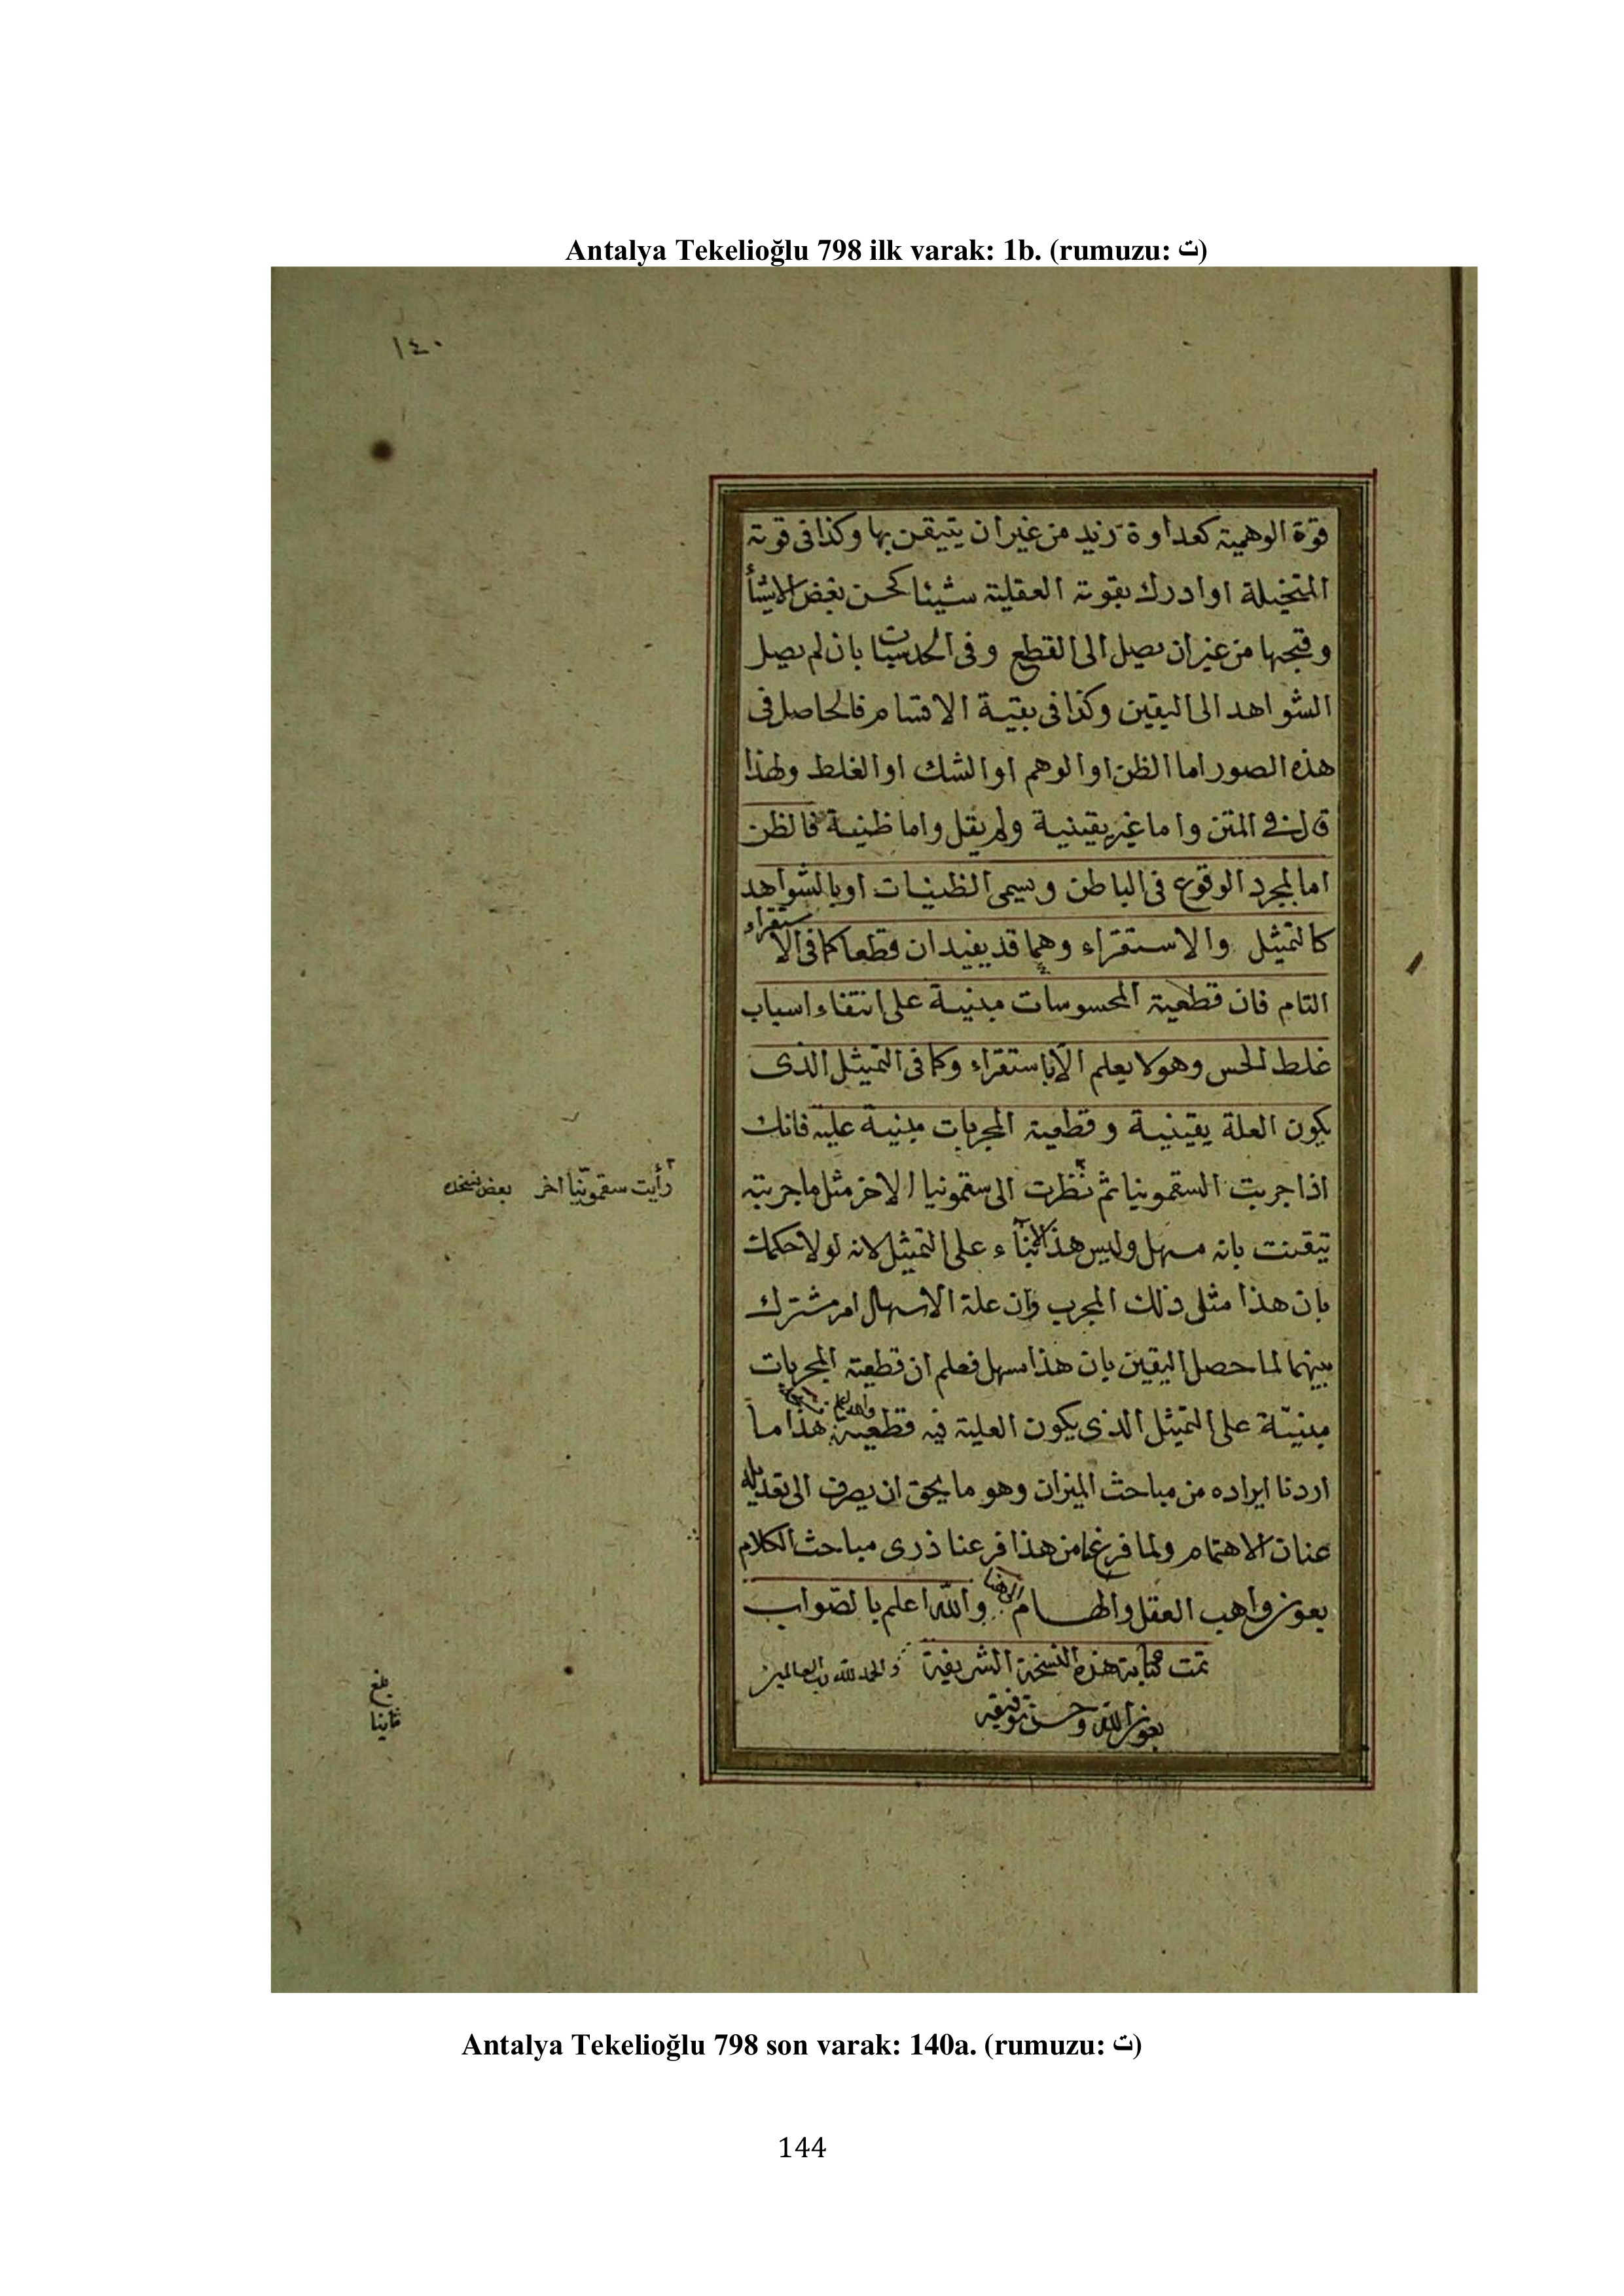 Antalya Tekelioğlu 798 ilk varak: 1b. (rumuzu: ت)
١٤٠
قوة الوهمية كعداوة زيد من غير ان يتيقن بها وكذا فى قوته
المتخيلة او ادرك بقوته العقلية شيئا كحسن بعض الاشيأ
وقبحها من غير ان يصل الى القطع وفى الحدسيات بان لم يصل
الشواهد الى اليقين وكذا فى بقية الاقسام فالحاصل فى
هذه الصور اما الظن او الوهم او الشك او الغلط ولهذا
قال فى المتن واما غير يقينية ولم يقل واما ظنية فالظن
اما لمجرد الوقوع فى الباطن ويسمى الظنيات او بالشواهد
كالتمثيل والاستقراء وهما قد يفيدان قطعا كما فى الاستقراء
التام فان قطعية المحسوسات مبنية على انتفاء اسباب
غلط الحس وهو لا يعلم الا باستقراء وكما فى التمثيل الذى
يكون العلة يقينية وقطعية المجربات مبنية عليه فانك
اذا جربت السقمونيا ثم نظرت الى سقمونيا الاخر مثل ما جربته
رأيت سقمونيا اخر بعض نسخه
تيقنت بانه مسهل وليس هذا الا بنآء على التمثيل لانه لولا حكمك
بان هذا مثل ذلك المجرب وان علة الاسهال امر مشترك
بينهما لما حصل اليقين بان هذا مسهل فعلم ان قطعية المجربات
مبنيّة على التمثيل الذى يكون العلية فيه قطعية والله اعلم هذا ما
اردنا ايراده من مباحث الميزان وهو ما يحق ان يصرف الى تعديله
عنان الاهتمام ولما فرغنا من هذا فرعنا ذرى مباحث الكلام
بعون واهب العقل والهام والله اعلم بالصواب
تمت كتابة هذه النسخة الشريفة والحمد لله رب العالمين
بعون الله وحسن توفيقه
بلغ
Antalya Tekelioğlu 798 son varak: 140a. (rumuzu: ت)
144